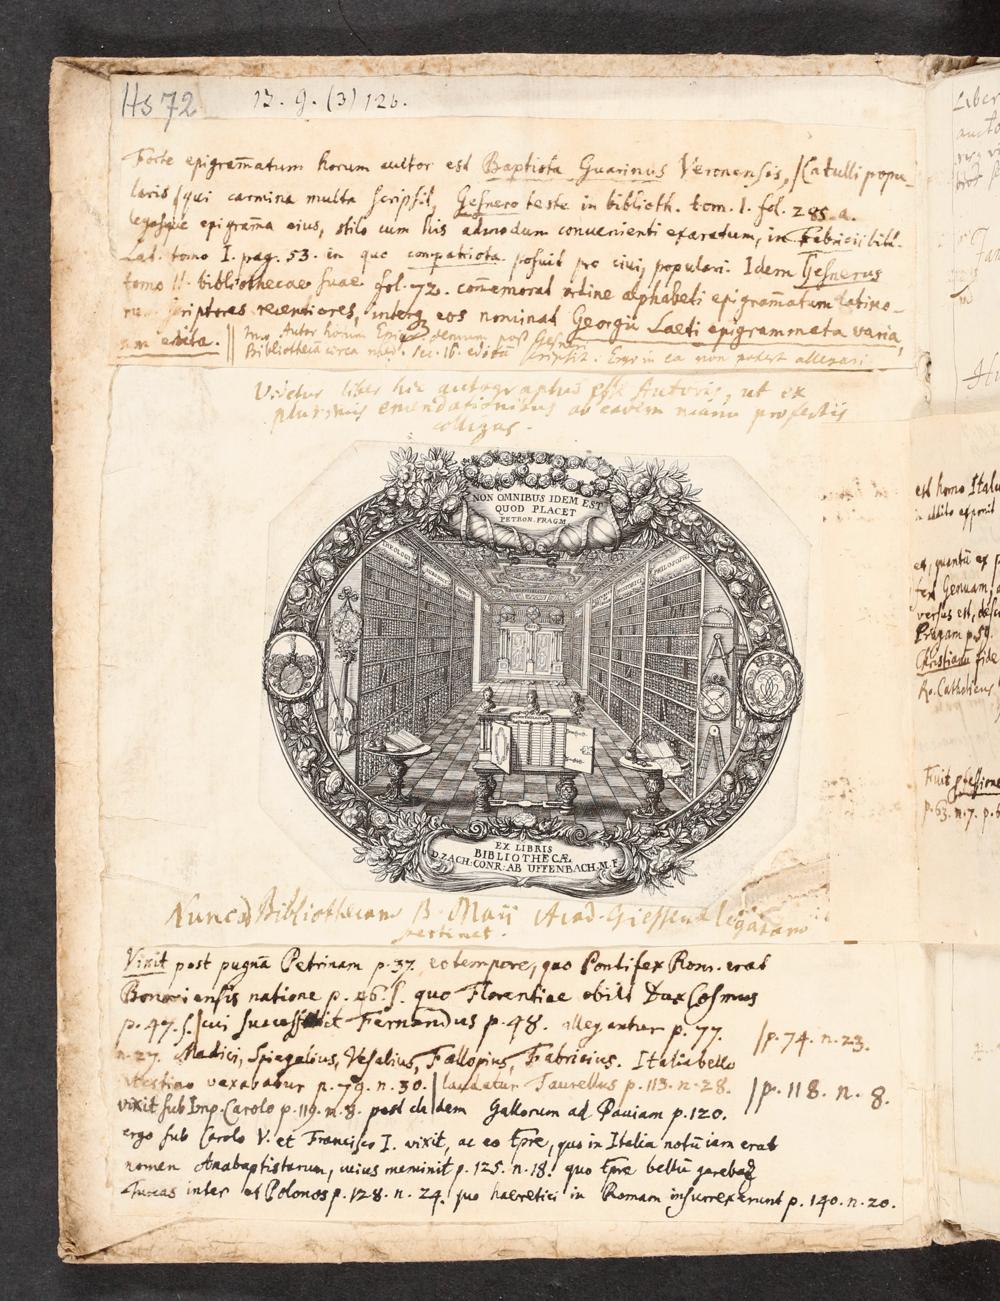 Hs 72 12. 9. (3) 126.
Forte epigram̄atum horum auctor est Baptista Guarinus Veronensis, /Catulli popu-
laris/ qui carmina multa scripsit, Gesnero teste in biblioth. tom. 1. fol. 285. a.
epigram̄a eius, stilo cum his admodum convenienti exaratum, in Fabricii bibl.
Lat. tomo I. pag. 53. in quo compatriota posuit pro civi, populari. Idem Gesnerus
tomo II. bibliothecae suae fol. 72. com̄emorat ordine alphabeti epigram̄atum latino-
scriptores recentiores, eos nominat Georgii Laeti epigrammata varia,
edita. ||
Autor horum post
Bibliothecā circa sec. 16. editā scripsit. Ergo in ea non potest allegari.
Videtur liber hic autographus esse Autoris, ut ex
plurimis emendationibus ab eadem manu profectis
colligas.
NON OMNIBUS IDEM EST
QUOD PLACET
PETRON. FRAGM
EX LIBRIS
BIBLIOTHECÆ
D. ZACH: CONR: AB UFFENBACH. M. F.
Nunc ad Bibliothecam B. Maii Acad. Giessensi
pertinet.
Vixit post pugnā Petrinam p. 37. eo tempore, quo Pontifex Rom. erat
Bononiensis natione p. 46. s. quo Florentiae obiit Dux Cosmus
p. 47. s. / cui successit Fernandus p. 48. p. 77. /p. 74. n. 23.
n. 27. Medici, Spiegelius, Vesalius, Fallopius, Fabricius. Italia bello
intestino vexabatur p. 79. n. 30. | laudatur Taurellus p. 113. n. 28. /p. 118. n. 8.
vixit sub Imp. Carolo p. 119. n. 8. post cladem Gallorum ad Paviam p. 120.
ergo sub Carolo V. et Francisco I. vixit, ac eo tp̄re, quo in Italia notū iam erat
nomen Anabaptistarum, cuius meminit p. 125. n. 18. quo tp̄re bellū gerebat
Turcas inter et Polonos p. 128. n. 24. quo haeretici in Romam insurrexerunt p. 140. n. 20.
Liber
est homo Italu
ex Genuam
versus est,
Pragam p. 59.
Christianū fide
Ro. Catholicus
Fuit
p. 63. n. 7.